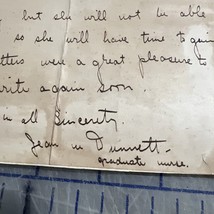 but she will not be able
so she will have time to
letters were a great pleasure to
write again soon.
in all Sincerity.
Jean M Dunnett-
graduate nurse.